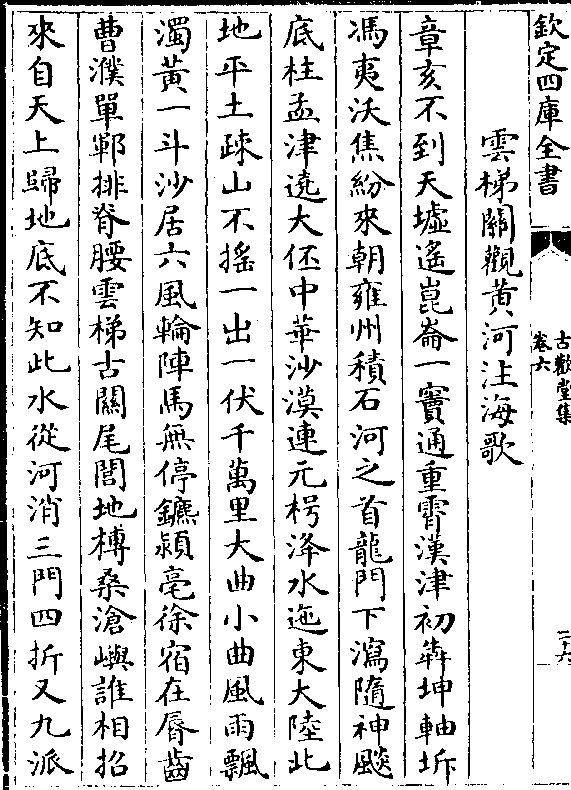 欽定四庫全書
古歡堂集
卷六
二十六
雲梯關觀黄河注海歌
章亥不到天墟遙崑崙一竇通重霄漢津初犇坤軸坼
馮夷沃焦紛來朝雍州積石河之首龍門下瀉隨神飈
底柱孟津遶大伾中華沙漠連元枵洚水迤東大陸北
地平土疎山不搖一出一伏千萬里大曲小曲風雨飄
濁黄一斗沙居六風輪陣馬無停鑣潁亳徐宿在脣齒
曹濮單鄆排脊腰雲梯古關尾閭地榑桑滄嶼誰相招
來自天上歸地底不知此水從河消三門四折又九派